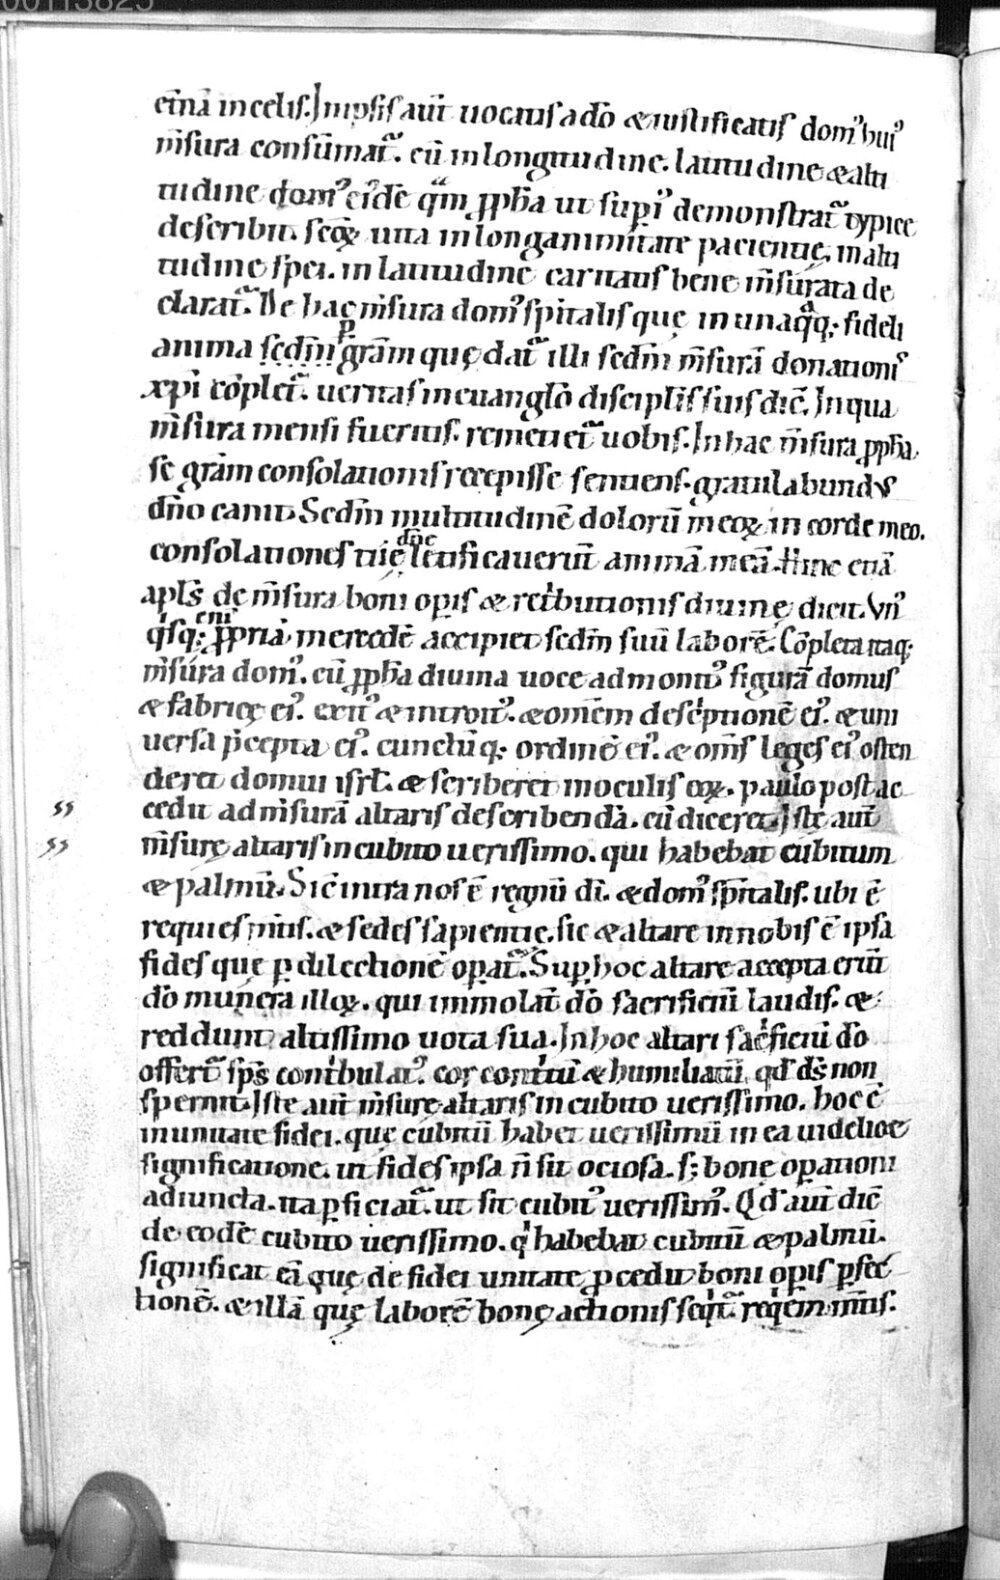 etnā in celis. In ipsis aut̄ uocatis a dō & iustificatis domꝰ huiꝰ
m̄sura consūmat᷑. cū in longitudine. latitudine & alti
tudine domꝰ eiꝰdē q̄m ꝓph̄a ut supiꝰ demonstrat᷑ typice
describit. seꝗꝫ uita in longanimitate pacientię. in alti
tudine spei. in latitudine caritatis bene m̄surata de
clarat᷑. De hac m̄sura domꝰ sp̄italis quę in unaqͣq; fideli
anima sedm̄ ꝑ grām quę dat᷑ illi sedm̄ m̄surā donationiſ
xp̄i cōplet᷑. ueritas in euanglo discipliſ suis dic̄. In qua
m̄sura mensi fueritis. remetiet᷑ uobis. In hac m̄sura ꝓph̄a
se grām consolationis recepisse sentiens. gratulabundꝰ
dn̄o canit. Sedm̄ multitudinē dolorū meoꝝ in corde meo.
consolationes tuę dn̄e letificauerūt animā meā. Hinc etiā
apls̄ de m̄sura boni opis & retͥbutionis diuinę dicit. Vnꝰ
qͥsq; eniͫ ꝓpriā mercedē accipiet sedm̄ suū laborē. Cōpleta itaq;
m̄sura domꝰ. cū ꝓph̄a diuina uoce admonitꝰ figurā domus
& fabricę eiꝰ. exitꝰ & introitꝰ. & omēm descͥptionē eiꝰ. & uni
uersa p̄cepta eiꝰ. cunctūq; ordinē eiꝰ. & om̄s leges eiꝰ osten
deret domui isrl̄. & scriberet in oculis eoꝝ. paulo post ac
cedit ad m̄surā altaris describendā. cū diceret. Istę aut̄
m̄surę altaris in cubito uerissimo. qui habebat cubitum
& palmū. Sic̄ intra nos ē regnū dī. & domꝰ sp̄italis. ubi ē
requies m̄tis. & sedes sapientię. sic & altare in nobis ē ipsa
fides que ꝑ dilectionē oꝑat᷑. Suꝑ hoc altare accepta erūt
dō munera illoꝝ. qui immolāt dō sacrificiū laudis. &
reddunt altissimo uota sua. In hoc altari sacͥficiū dō
offert᷑ sp̄s contͥbulatꝰ. cor contͥtū & humiliatū. qd̄ ds̄ non
spernit. Iste aut̄ m̄surę altaris in cubito uerissimo. hoc ē
in unitate fidei. quę cubitū habet uerissimū in ea uidelicet
significatione. ut fides ipsa n̄ sit ociosa. s; bonę oꝑationi
adiuncta. ita ꝑficiat᷑. ut sit cubitꝰ uerissimꝰ. Qd̄ aut̄ dic̄
de eodē cubito uerissimo. qͥ habebat cubitū & palmū.
significat eā quę de fidei unitate ꝓcedit boni opis ꝑfec
tionē. & illā quę laborē bonę actionis seqͥt᷑ reqͥem m̄tis.